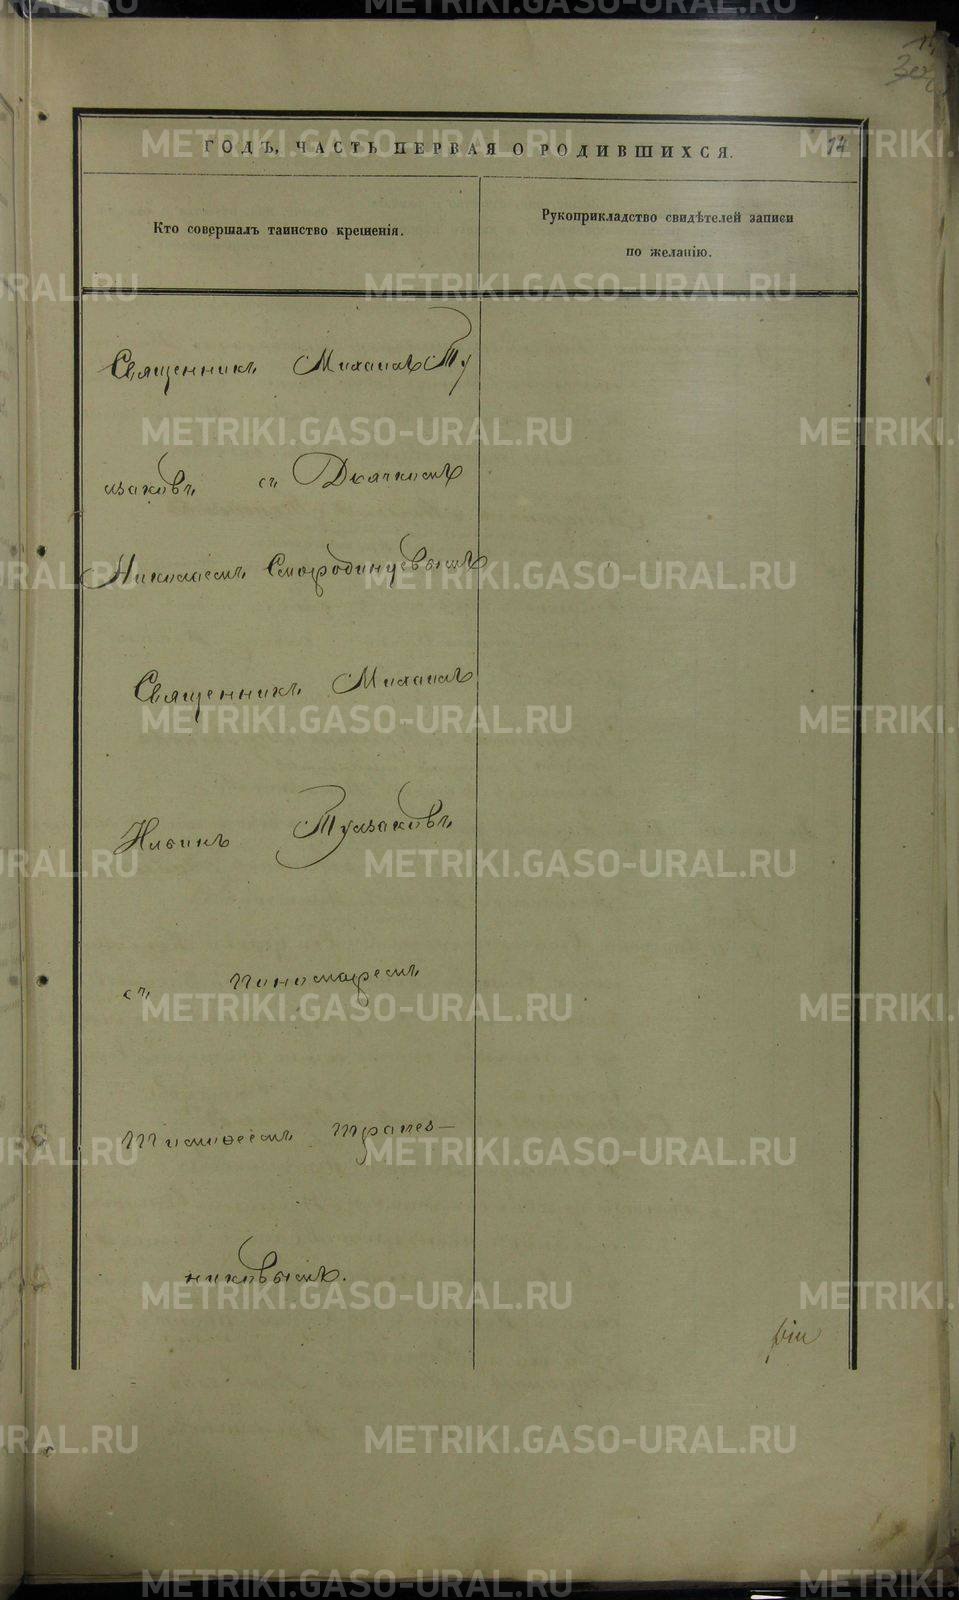 ГОДЪ, ЧАСТЬ ПЕРВАЯ О РОДИВШИХСЯ.
14
Кто совершалъ таинство крещенія.
Рукоприкладство свидѣтелей записи
по желанію.
Священникъ Михаилъ Ту
заковъ съ Дьячкомъ
Николаемъ Смородинцевымъ
Священникъ Михаилъ
Ильинъ Тузаковъ
съ Пономаремъ
Тимоѳеемъ Трапез-
никовымъ.
METRIKI.GASO-URAL.RU